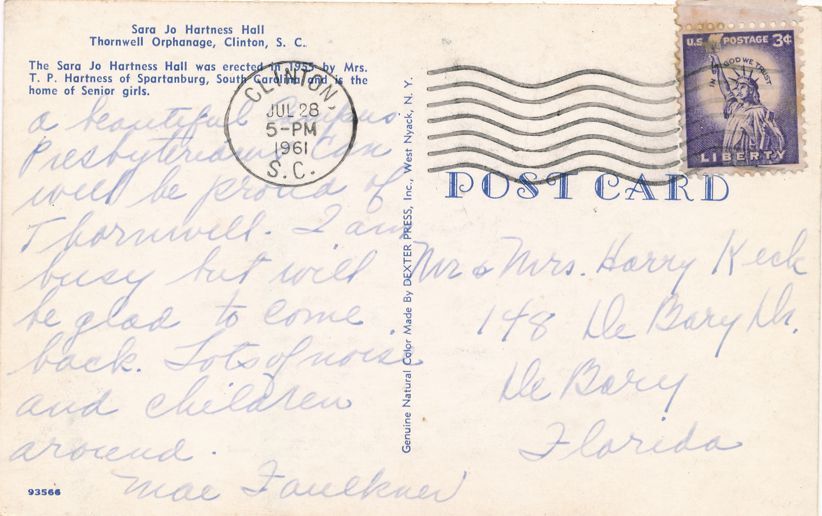 Sara Jo Hartness Hall
Thornwell Orphanage, Clinton, S. C.
The Sara Jo Hartness Hall was erected in 1955 by Mrs.
T. P. Hartness of Spartanburg, South Carolina and is the
home of Senior girls.
a beautiful campus
Presbyterians can
well be proud of
Thornwell. I am
busy but will
be glad to come
back. Lots of noise
and children
around.
Mae Faulkner
93566
Genuine Natural Color Made By DEXTER PRESS, Inc., West Nyack, N. Y.
CLINTON,
JUL 28
5-PM
1961
S.C.
U.S. POSTAGE 3¢
IN GOD WE TRUST
LIBERTY
POST CARD
Mr & Mrs. Harry Keck
148 De Bary Dr.
De Bary
Florida